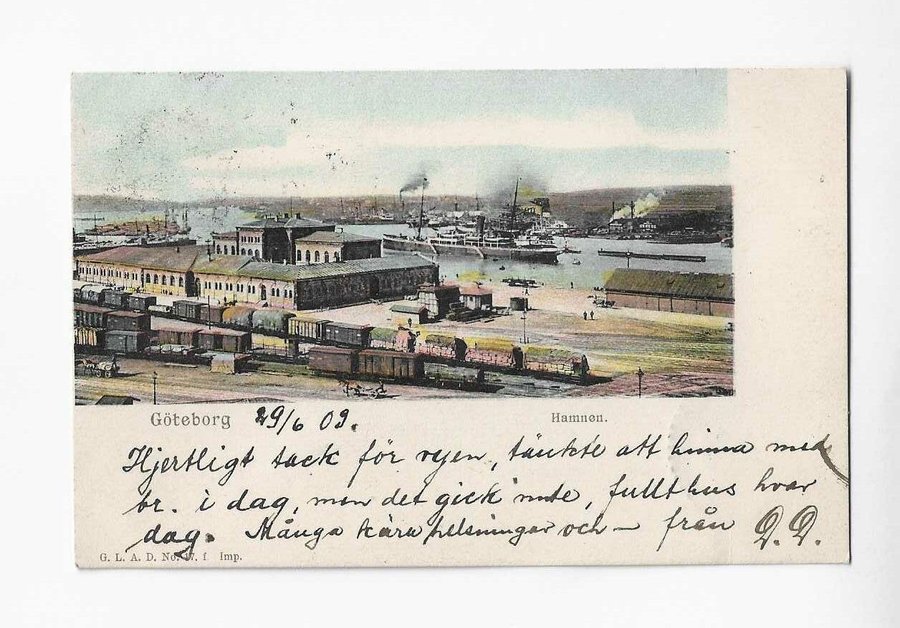 Göteborg 29/6 03.
Hamnen.
Hjertligt tack för vyen, tänkte att hinna med
br. i dag, men det gick inte, fullt hus hvar
dag. Många kära helsningar och – från D. D.
G. L. A. D. No. 17. f Imp.